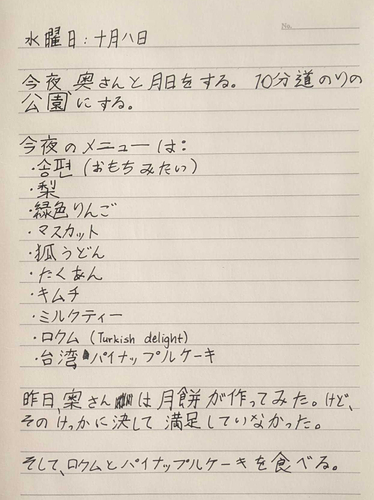 No.
水曜日:十月八日
今夜 奥さんと月日をする。10分道のりの
公園にする。
今夜のメニューは:
・송편 (おもちみたい)
・梨
・緑色りんご
・マスカット
・狐うどん
・たくあん
・キムチ
・ミルクティー
・ロクム (Turkish delight)
・台湾 パイナップルケーキ
昨日、奥さん は月餅が作ってみた。けど、
そのけっかに決して満足していなかった。
そして、ロクムとパイナップルケーキを食べる。